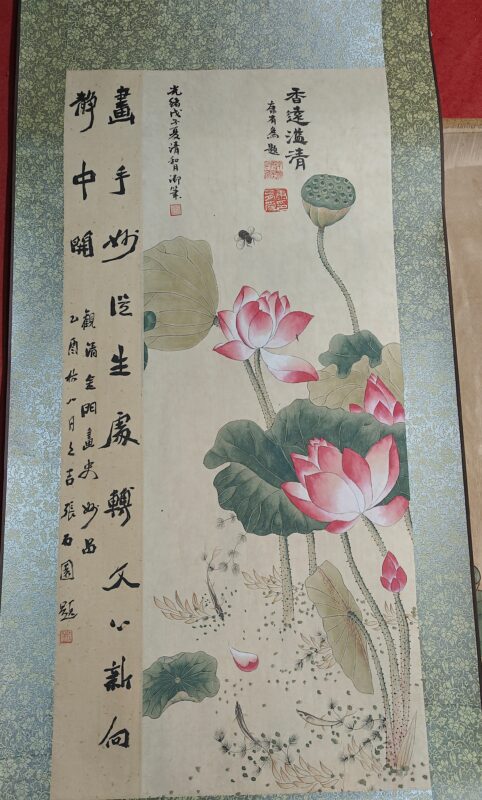 香遠溢清
康有為題
光緒戊子夏清和月御筆
畫手妙從生處轉文心新向
靜中開
觀清金門畫史妙品
乙酉秋八月之吉張石園題